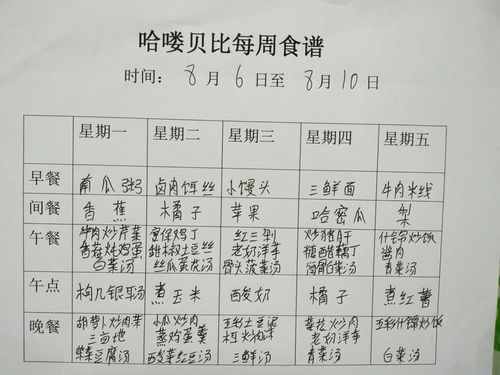 哈喽贝比每周食谱
时间: 8月6日至8月10日
星期一 星期二 星期三 星期四 星期五
早餐 南瓜粥 卤肉饵丝 小馒头 三鲜面 牛肉米线
间餐 香蕉 橘子 苹果 哈密瓜 梨
午餐 牛肉炒芹菜 宫保鸡丁 红三剁 炒猪肝 什锦炒饭
香菇炖鸡蛋 甜椒土豆丝 老奶洋芋 糖醋藕丁 酱肉
白菜汤 丝瓜蛋花汤 骨头菠菜汤 筒骨白菜汤 青菜汤
午点 枸几银耳汤 煮玉米 酸奶 橘子 煮红薯
晚餐 胡萝卜炒肉 小瓜炒肉 五彩土豆泥 炒肉 五彩什锦炒饭
三亩地 蒸鸡蛋羹 老奶洋芋
豆腐汤 酸菜红豆汤 三鲜汤 青菜汤 白菜汤